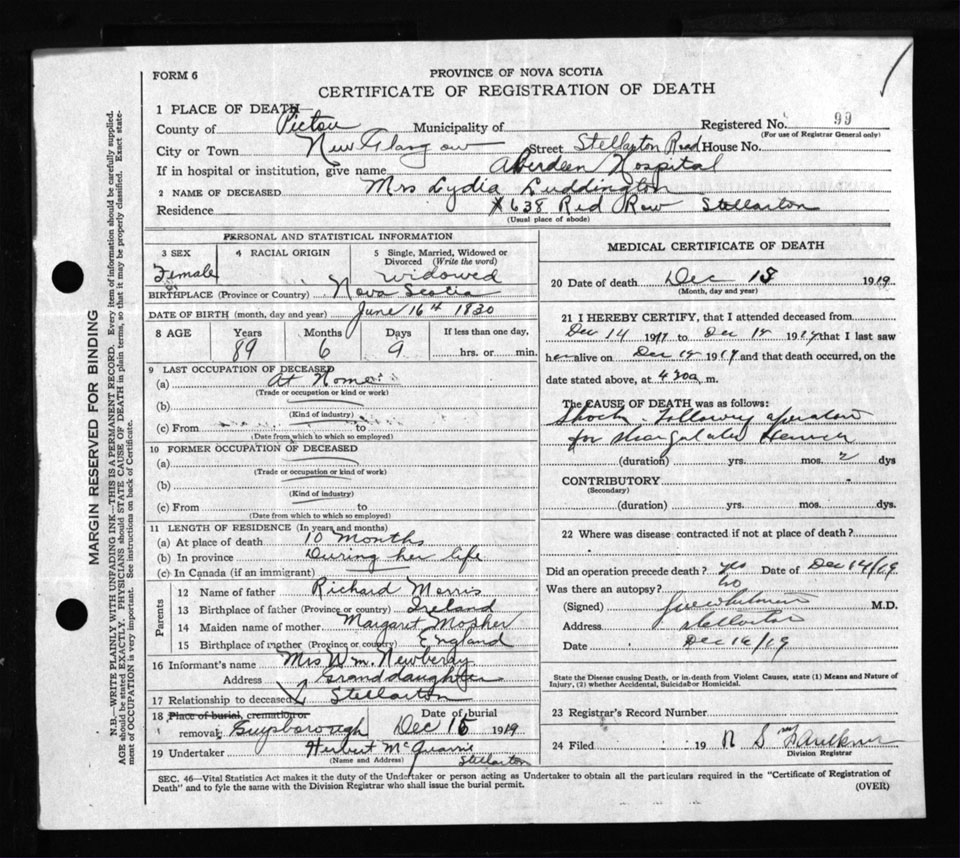 FORM 6
PROVINCE OF NOVA SCOTIA
CERTIFICATE OF REGISTRATION OF DEATH
1 PLACE OF DEATH—
County of Pictou Municipality of Registered No. 99
(For use of Registrar General only)
City or Town New Glasgow Street Stellarton Road House No.
If in hospital or institution, give name Aberdeen Hospital
2 NAME OF DECEASED Mrs Lydia Luddington
Residence 638 Red Row Stellarton
(Usual place of abode)
PERSONAL AND STATISTICAL INFORMATION
3 SEX 4 RACIAL ORIGIN 5 Single, Married, Widowed or Divorced (Write the word)
Female widowed
BIRTHPLACE (Province or Country) Nova Scotia
DATE OF BIRTH (month, day and year) June 16th 1830
8 AGE Years Months Days If less than one day,
89 6 9 hrs. or min.
9 LAST OCCUPATION OF DECEASED
(a) At Home
(Trade or occupation or kind or work)
(b)
(Kind of industry)
(c) From to
(Date from which to which so employed)
10 FORMER OCCUPATION OF DECEASED
(a)
(Trade or occupation or kind of work)
(b)
(Kind of industry)
(c) From to
(Date from which to which so employed)
11 LENGTH OF RESIDENCE (In years and months)
(a) At place of death 10 Months
(b) In province During her life
(c) In Canada (if an immigrant)
Parents
12 Name of father Richard Morris
13 Birthplace of father (Province or country) Ireland
14 Maiden name of mother Margaret Mosher
15 Birthplace of mother (Province or country) England
16 Informant's name Mrs Wm. Newberay
Address Granddaughter
17 Relationship to deceased Stellarton
18 Place of burial, cremation or Date of burial
removal Guysborough Dec 15 1919
19 Undertaker Herbert McQuarrie
(Name and Address) Stellarton
MEDICAL CERTIFICATE OF DEATH
20 Date of death Dec 18 1919.
(Month, day and year)
21 I HEREBY CERTIFY, that I attended deceased from
Dec 14 1919 to Dec 1919 that I last saw
her alive on Dec 1919 and that death occurred, on the
date stated above, at 4 30a m.
The CAUSE OF DEATH was as follows:
Shock following operation
for Hernia
(duration) yrs. mos. 2 dys
CONTRIBUTORY
(Secondary)
(duration) yrs. mos. dys
22 Where was disease contracted if not at place of death?
Did an operation precede death? yes Date of Dec 14/19
Was there an autopsy? no
(Signed) M.D.
Address Stellarton
Date Dec 16/19
State the Disease causing Death, or in death from Violent Causes, state (1) Means and Nature of
Injury, (2) whether Accidental, Suicidal or Homicidal.
23 Registrar's Record Number
24 Filed 19 Faulkner
Division Registrar
SEC. 46—Vital Statistics Act makes it the duty of the Undertaker or person acting as Undertaker to obtain all the particulars required in the "Certificate of Registration of
Death" and to fyle the same with the Division Registrar who shall issue the burial permit.
(OVER)
MARGIN RESERVED FOR BINDING
N.B.—WRITE PLAINLY WITH UNFADING INK—THIS IS A PERMANENT RECORD. Every item of information should be carefully supplied.
AGE should be stated EXACTLY. PHYSICIANS should STATE CAUSE OF DEATH in plain terms, so that it may be properly classified. Exact state-
ment of OCCUPATION is very important. See instructions on back of Certificate.